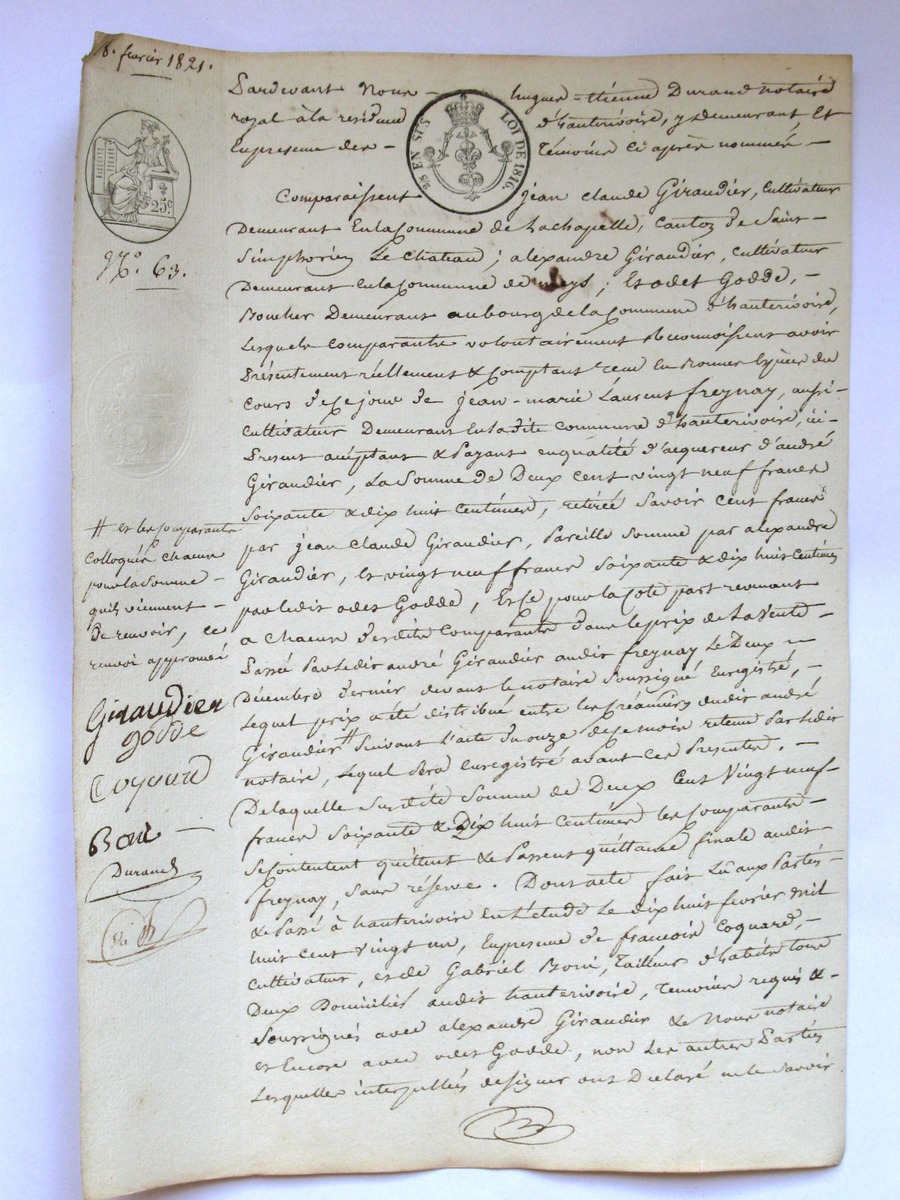 8. fevrier 1821.
25c.
N.o 63.
2/5 EN SUS
LOI DE 1816.
Pardevant Nous hugues-étienne Durand notaire
royal à la residence d'hauterivoire, y demeurant, Et
En presence des témoins ci après nommés
Comparaissent jean claude Giraudier, cultivateur
Demeurant En la commune de Lachapelle, canton de Saint-
Simphorien Le chateau; alexandre Giraudier, cultivateur
Demeurant en la commune de meys; Et odet Godde,
Boucher Demeurant au bourg de la commune d'hauterivoire,
Lesquels comparants volontairement Reconnoissent avoir
Présentement réellement & comptant reçu En bonnes Espèces du
cours de ce jour de jean-marie Laurent freynay, aussi
cultivateur Demeurant En la dite commune d'hauterivoire, ici
Présent acceptant & Payant en qualité d'acquereur d'andré
Giraudier, La Somme de Deux cent vingt neuf francs
Soixante & dix huit centimes, retirée Savoir cent francs
par jean claude Giraudier, Pareille somme par alexandre
Giraudier, Et vingt neuf francs soixante & dix huit centimes
par ledit odet Godde, Et ce pour la cote part revenant
a chacun desdits comparants dans le prix de la vente
Passée Par ledit andré Giraudier audit freynay Le Deux
Décembre dernier devant le notaire soussigné Enregistré,
Lequel prix a été distribué entre les créanciers dudit andré
Giraudier # Suivant l'acte du onze de ce mois retenu Par ledit
notaire, Lequel sera enregistré avant ces Presentes.
De laquelle Susdite Somme de Deux Cent Vingt neuf
francs Soixante & Dix huit Centimes les comparants
Se contentent quittent & Passent quittance finale audit
freynay, sans réserve. Dont acte fait Lu aux Parties
& Passé à hauterivoire En l'étude Le dix huit février mil
huit cent vingt un, En presence de francois Coquard,
cultivateur, et de Gabriel Boni, Tailleur d'habits tous
Deux Domiciliés audit hauterivoire, temoins requis &
Soussignés avec alexandre Giraudier & Nous notaire
et Encore avec odet Godde, non Les autres Parties
Lesquelles interpellées de signer ont Declaré ne le savoir
# et les comparants
colloqués chacun
pour la somme
qu'ils viennent
de recevoir, ce
renvoi approuvé
Giraudier
godde
Coquard
Boni
Durand